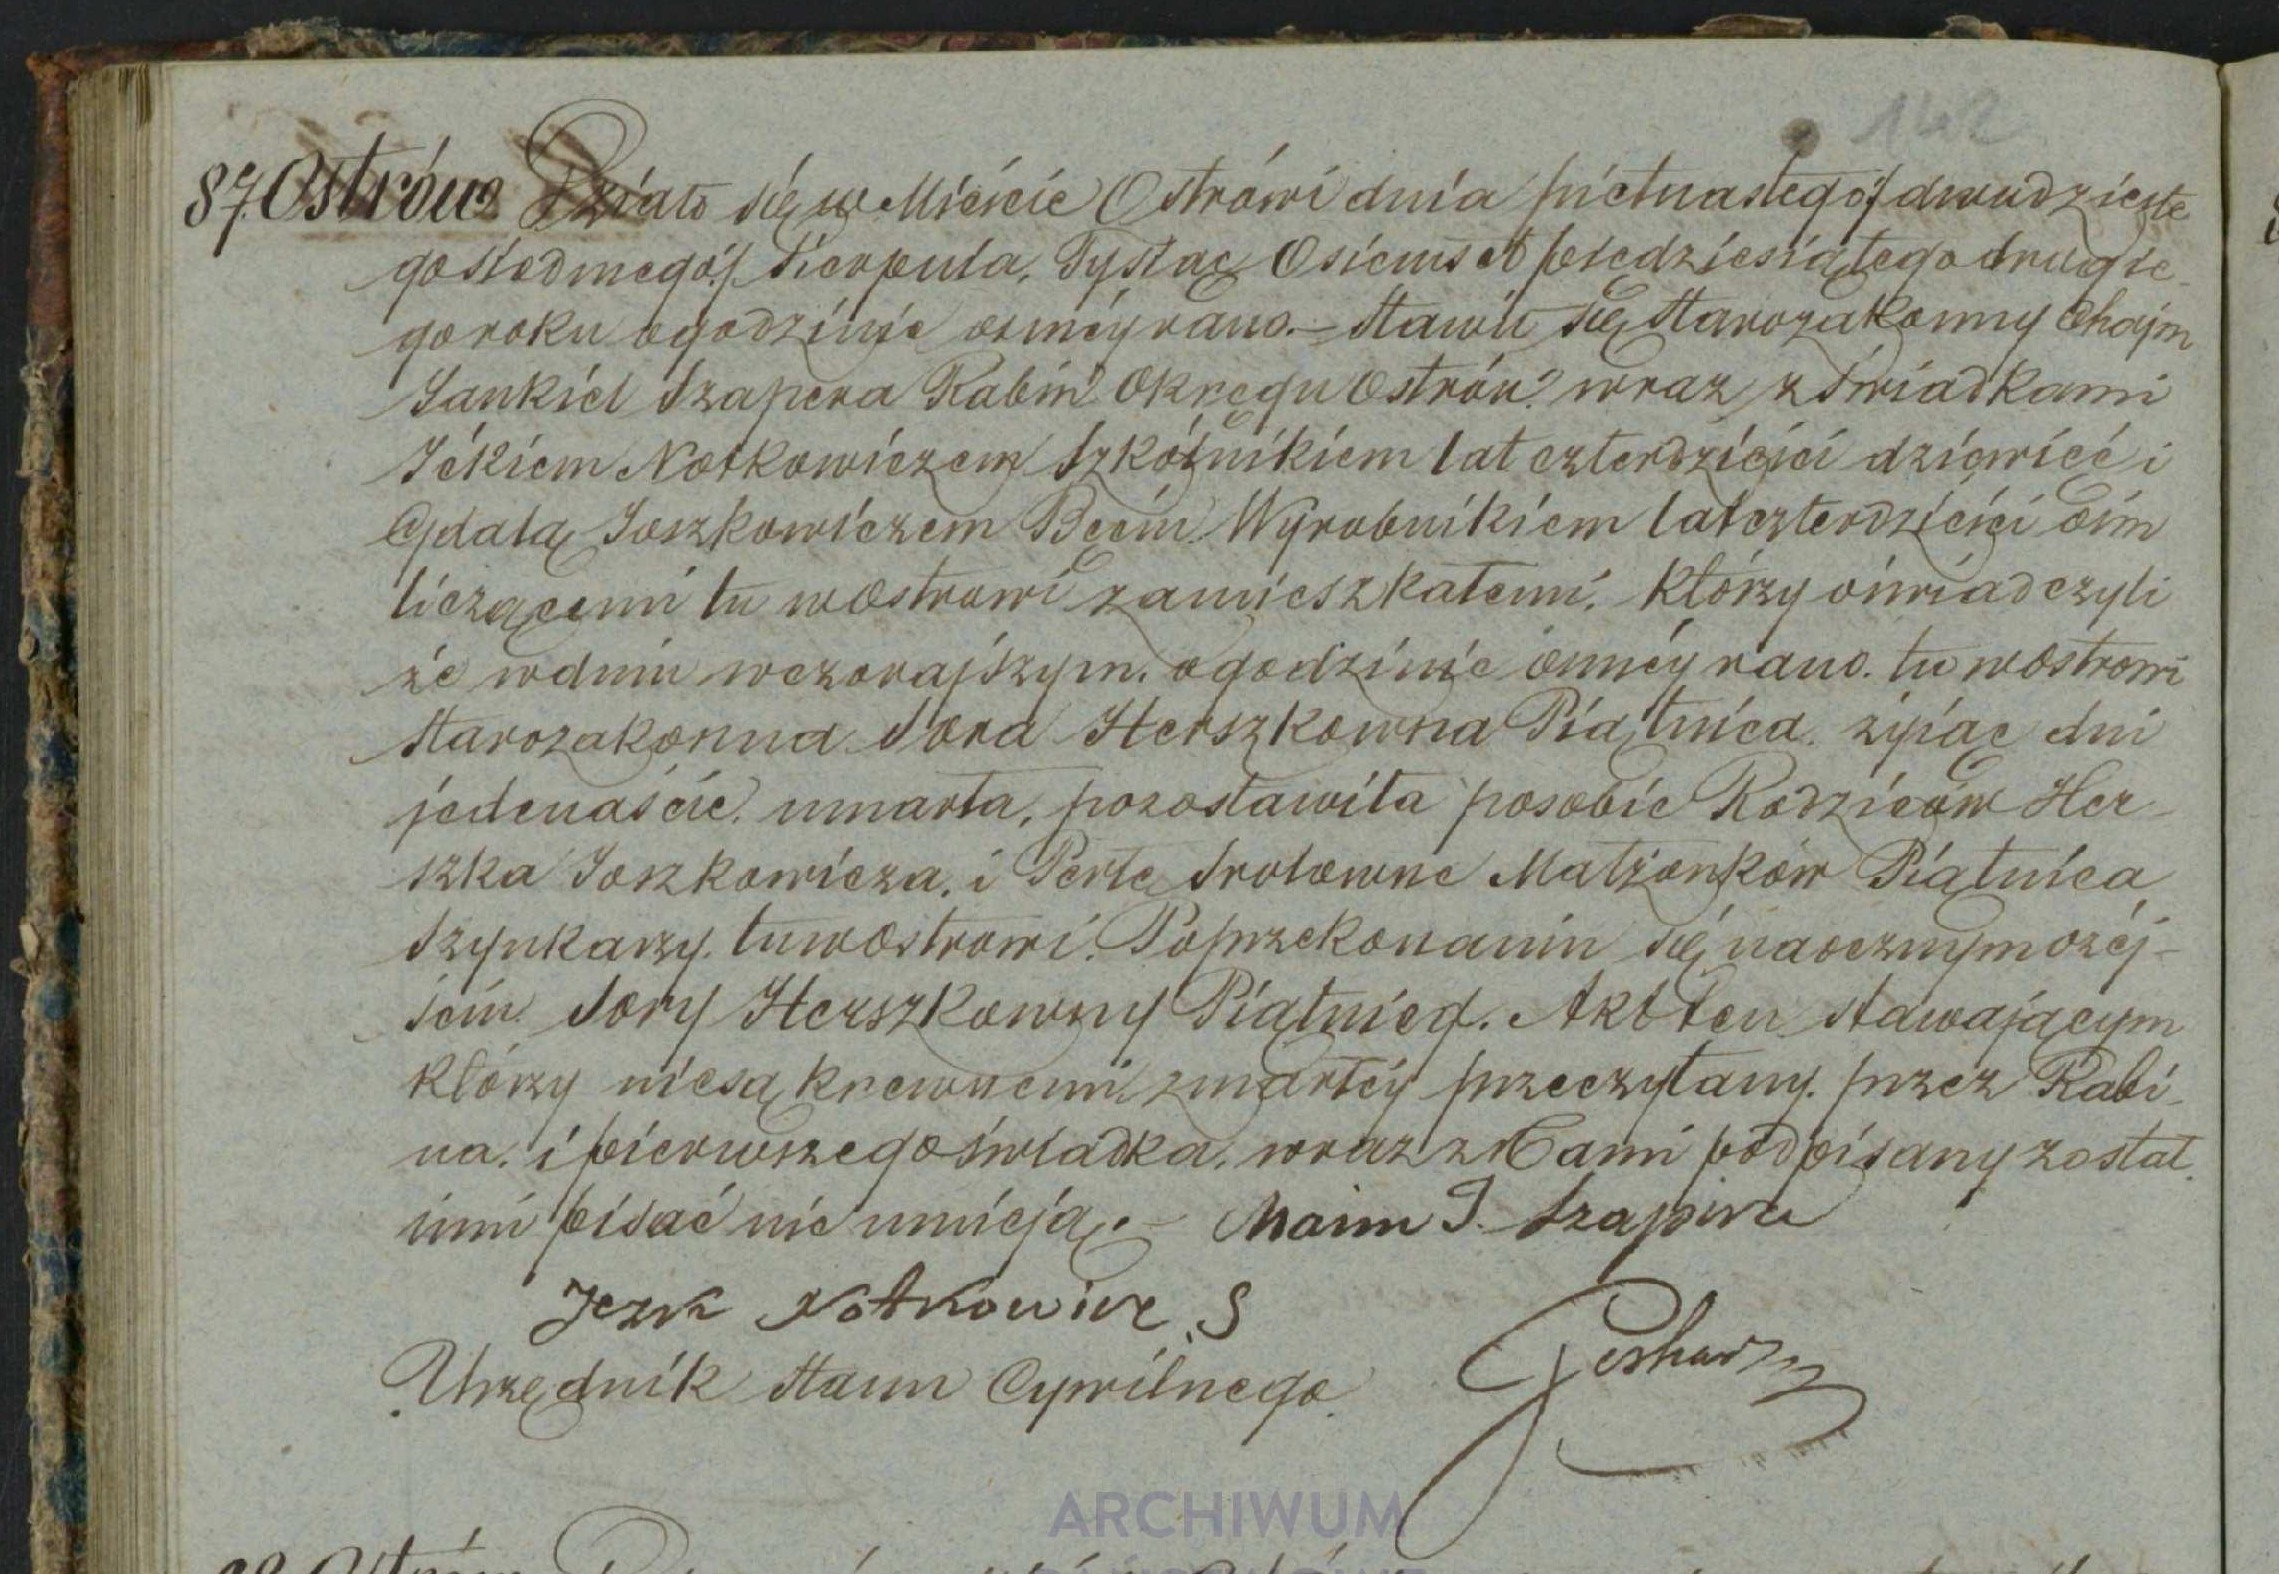 142
87. Ostrów. Działo się w Mieście Ostrowi dnia pietnastego/ dwudzieste
go siodmego/ Sierpnia, Tysiąc Osiemset piedziesiątego drugie
go roku o godzinie osméy rano. – Stawił się Starozakonny Chajm
Jankiel Szapera Rabin Okręgu Ostrow: wraz z Swiadkami
Ickiem Notkowiczem Szkólnikiem lat czterdzieści dziewięć i
Gdalą Joszkowiczem Wyrobnikiem lat czterdzieści ośm
liczącemi tu w Ostrowi zamieszkałemi, którzy oświadczyli
że w dniu wczorajszym, o godzinie ósméy rano, tu w Ostrowi
Starozakonna Sora Herszkowna Piątnica, żyiąc dni
jedenaście, umarła, pozostawiła po sobie Rodziców Her-
szka Joszkowicza, i Perlę Srolownę Małżonków Piątnica
Szynkarzy, tu w Ostrowi. Po przekonaniu się naocznym o zéj-
ściu Sory Herszkowny Piątnicy. Akt ten stawającym
którzy niesą krewnemi zmarłéy przeczytany, przez Rabi-
na, i pierwszego świadka, wraz z Nami podpisany został,
inni pisać nie umieją. – Chaim J. Szapira
Jcek Notkowicz S
Urzędnik Stanu Cywilnego.
ARCHIWUM